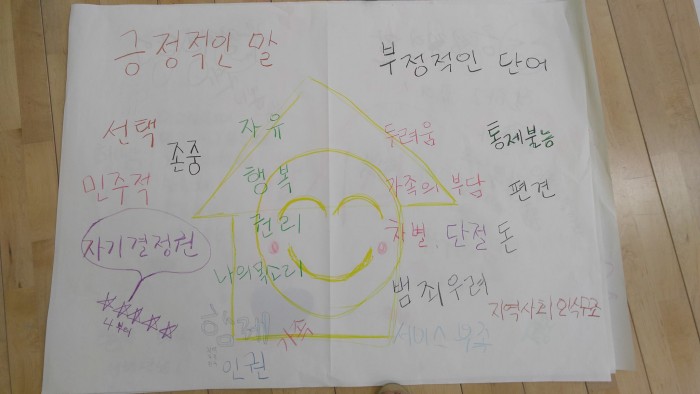 긍정적인 말
부정적인 단어
선택
존중
민주적
자기결정권
자유
행복
권리
나의목소리
인권
두려움
통제불능
가족의 부담
편견
차별, 단절
돈
범죄우려
지역사회 인식부족
서비스 부족